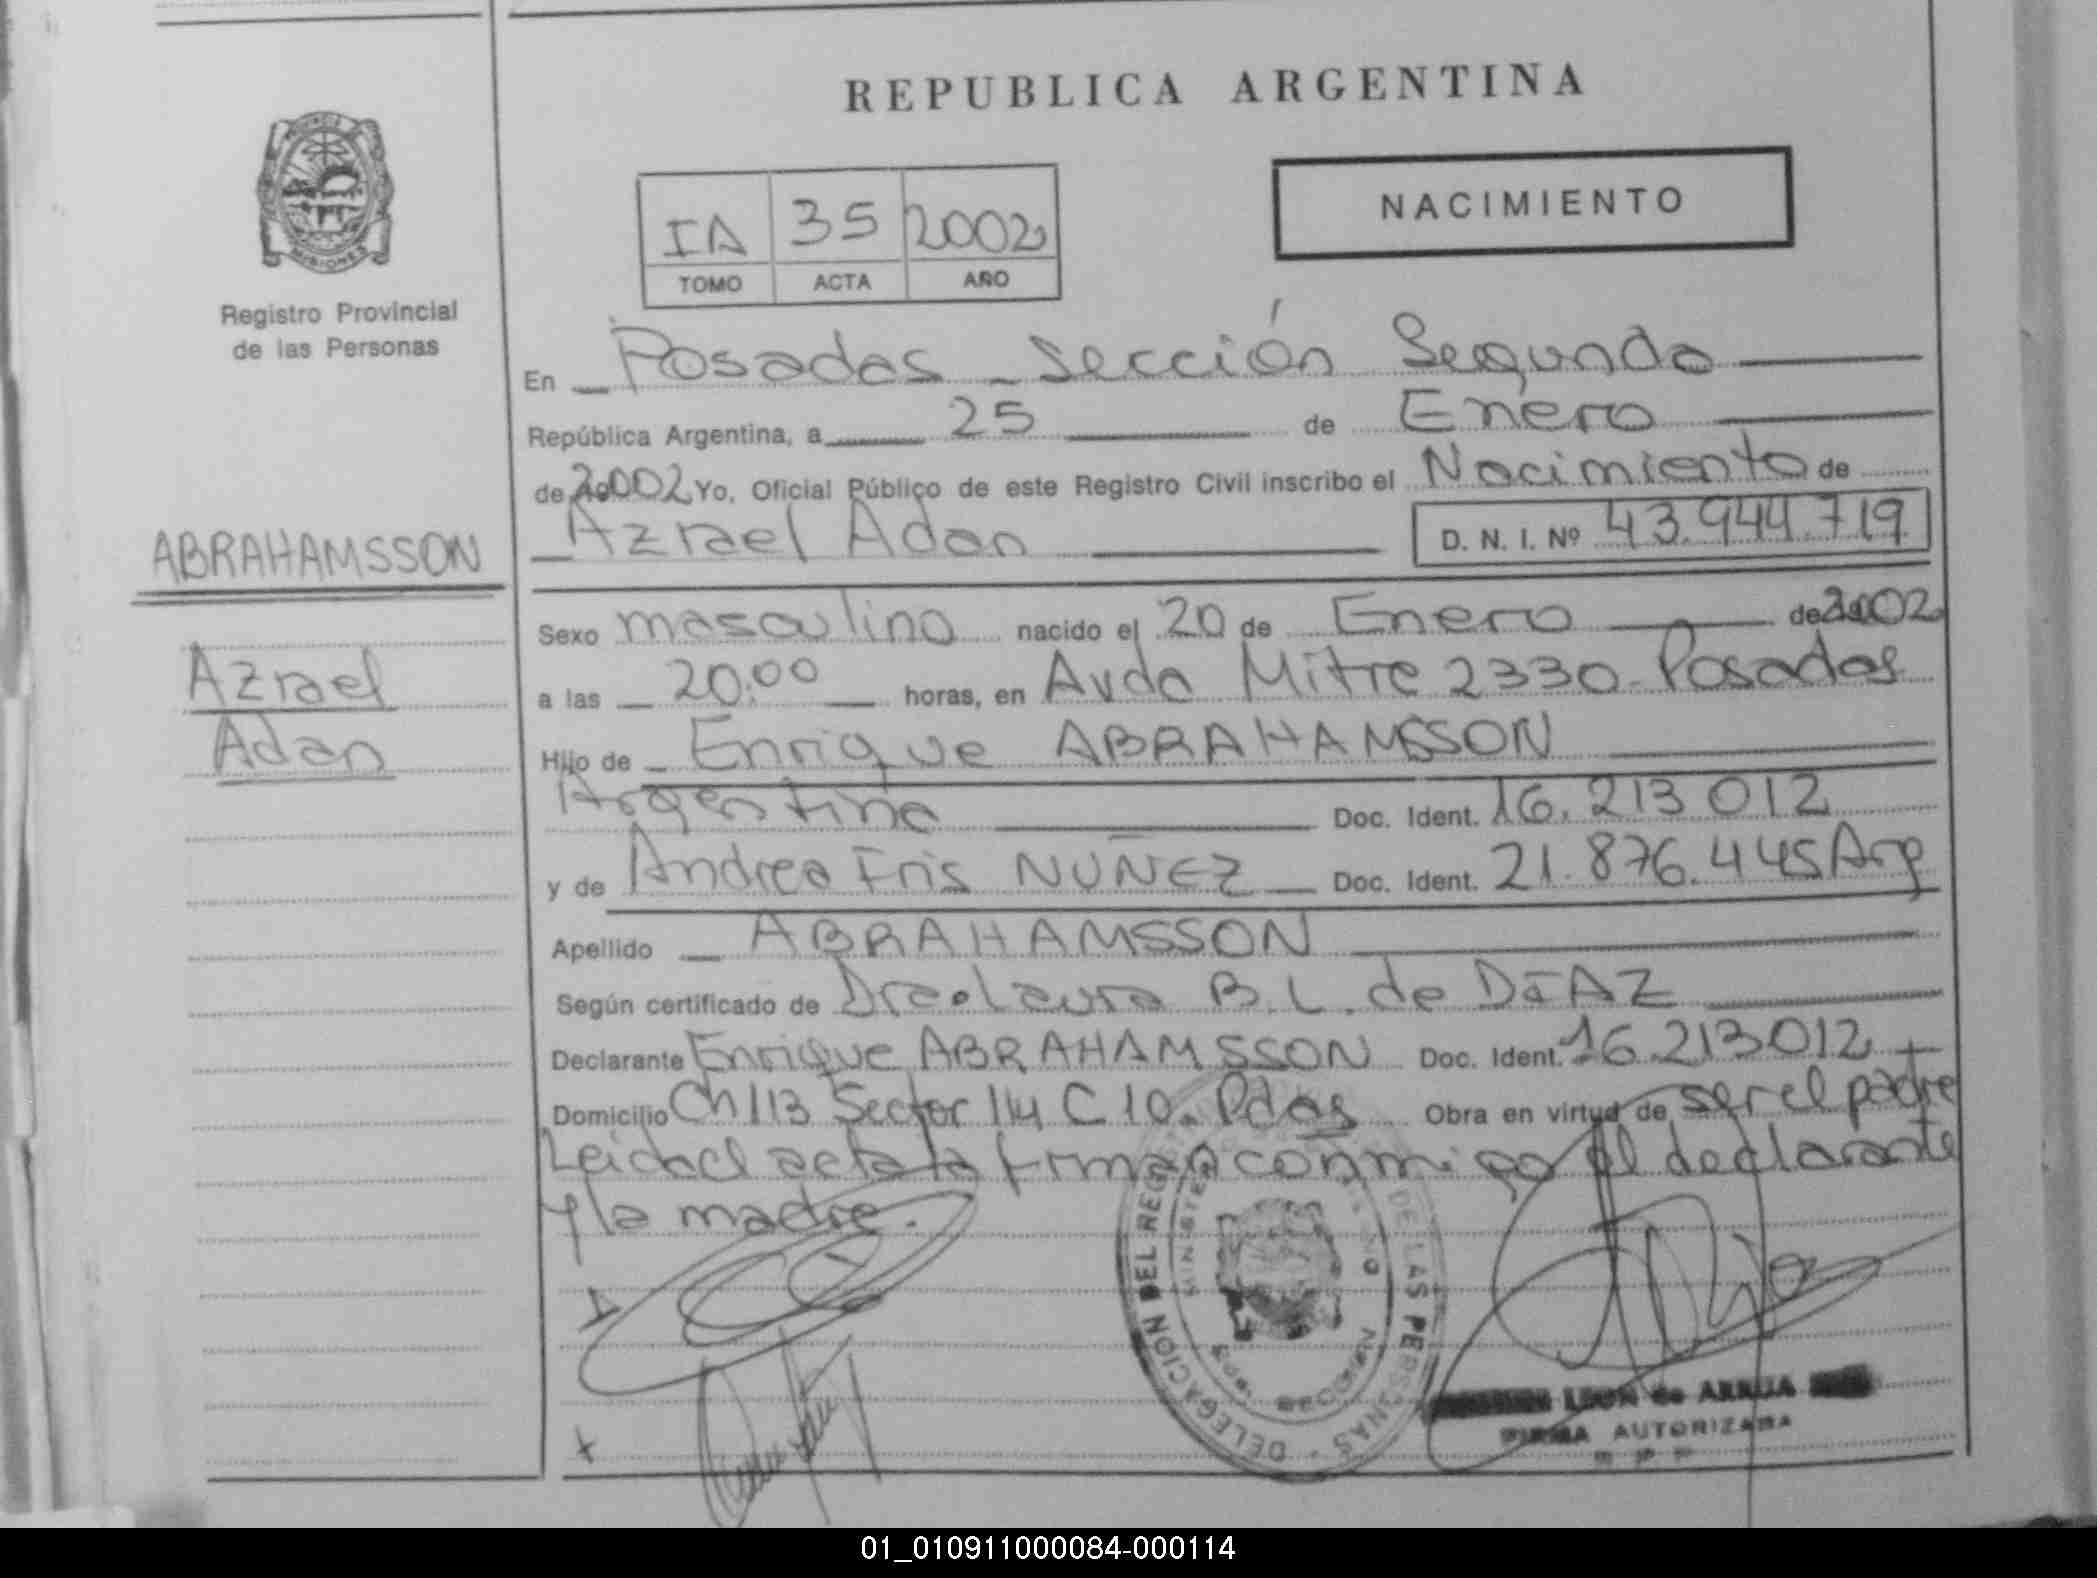 REPUBLICA ARGENTINA
NACIMIENTO
IA 35 2002
TOMO ACTA AÑO
PROVINCIA
MISIONES
Registro Provincial
de las Personas
ABRAHAMSSON
Azrael
Adan
En Posadas - Sección Segunda
República Argentina, a 25 de Enero
de 2002 Yo, Oficial Público de este Registro Civil inscribo el Nacimiento de
Azrael Adan D. N. I. Nº 43.944.719
Sexo masculino nacido el 20 de Enero de 2002
a las 20.00 horas, en Avda Mitre 2330 - Posadas
Hijo de Enrique ABRAHAMSSON
Argentina Doc. Ident. 16.213 012
y de Andrea Iris NUÑEZ Doc. Ident. 21.876.445 Arg
Apellido ABRAHAMSSON
Según certificado de Dra. Laura B. L. de DIAZ
Declarante Enrique ABRAHAMSSON Doc. Ident. 16.213012
Domicilio Ch 113 Sector 114 C 10. Pdas Obra en virtud de ser el padre
Leida el acta la firman conmigo el declarante
y la madre.
DELEGACION DEL REGISTRO DE LAS PERSONAS
LEON de ARRUA
FIRMA AUTORIZADA
01_010911000084-000114